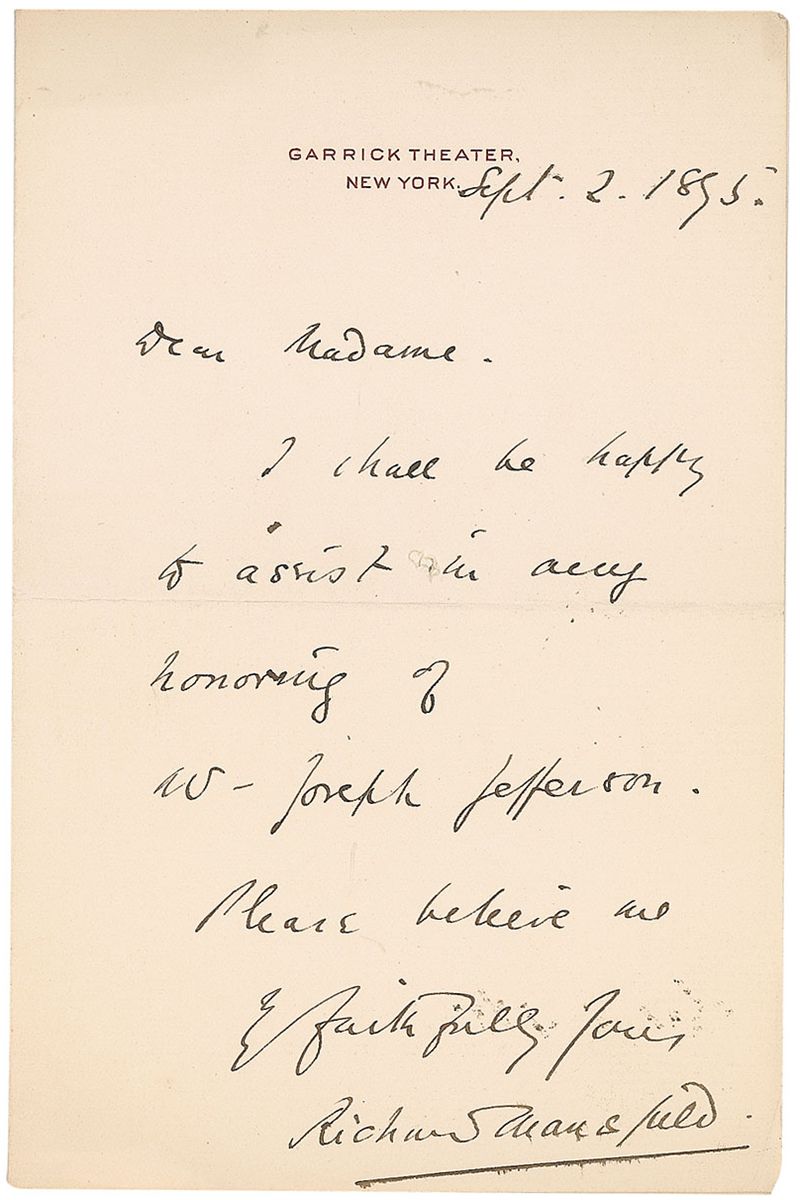 GARRICK THEATER,
NEW YORK. Sept. 2. 1895.
Dear Madame.
I shall be happy
to assist in any
honoring of
Mr- Joseph Jefferson.
Please believe me
faithfully Yours
Richard Mansfield.